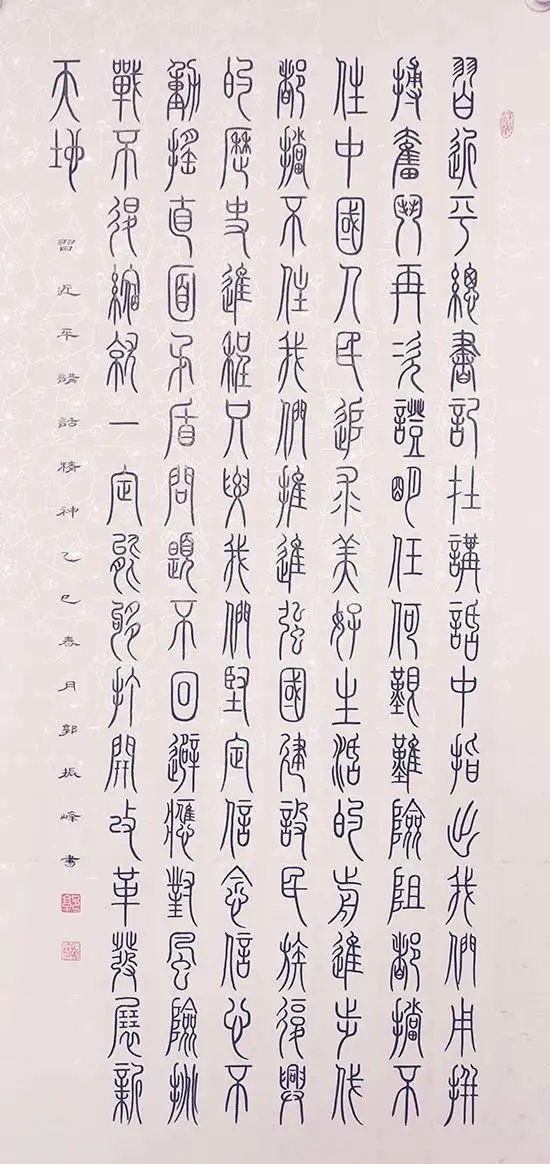 習近平總書記在講話中指出我們用拼
搏奮鬥再次證明任何艱難險阻都擋不
住中國人民追求美好生活的前進步伐
都擋不住我們推進強國建設民族復興
的歷史進程只要我們堅定信念信心不
動搖直面矛盾問題不回避應對風險挑
戰不退縮就一定能夠打開改革發展新
天地
習近平講話精神乙巳春月郭振峰書